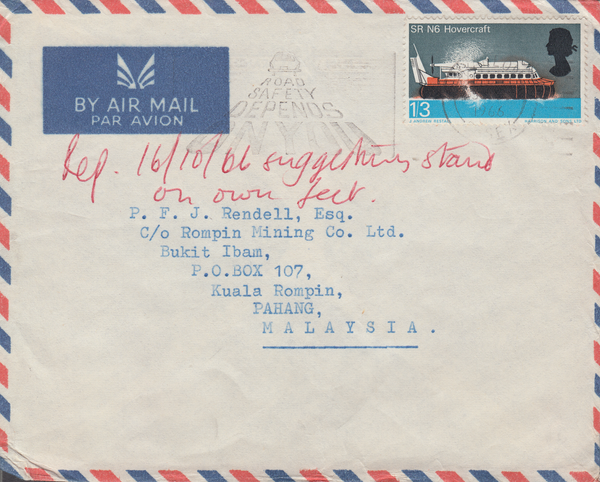 SR N6 Hovercraft
1'3
J. ANDREW RESTALL HARRISON AND SONS LTD
BY AIR MAIL
PAR AVION
ROAD
SAFETY
DEPENDS
ON YOU
Rep. 16/10/66 suggesting stand
on own feet.
P. F. J. Rendell, Esq.
C/o Rompin Mining Co. Ltd.
Bukit Ibam,
P.O.BOX 107,
Kuala Rompin,
PAHANG,
MALAYSIA.